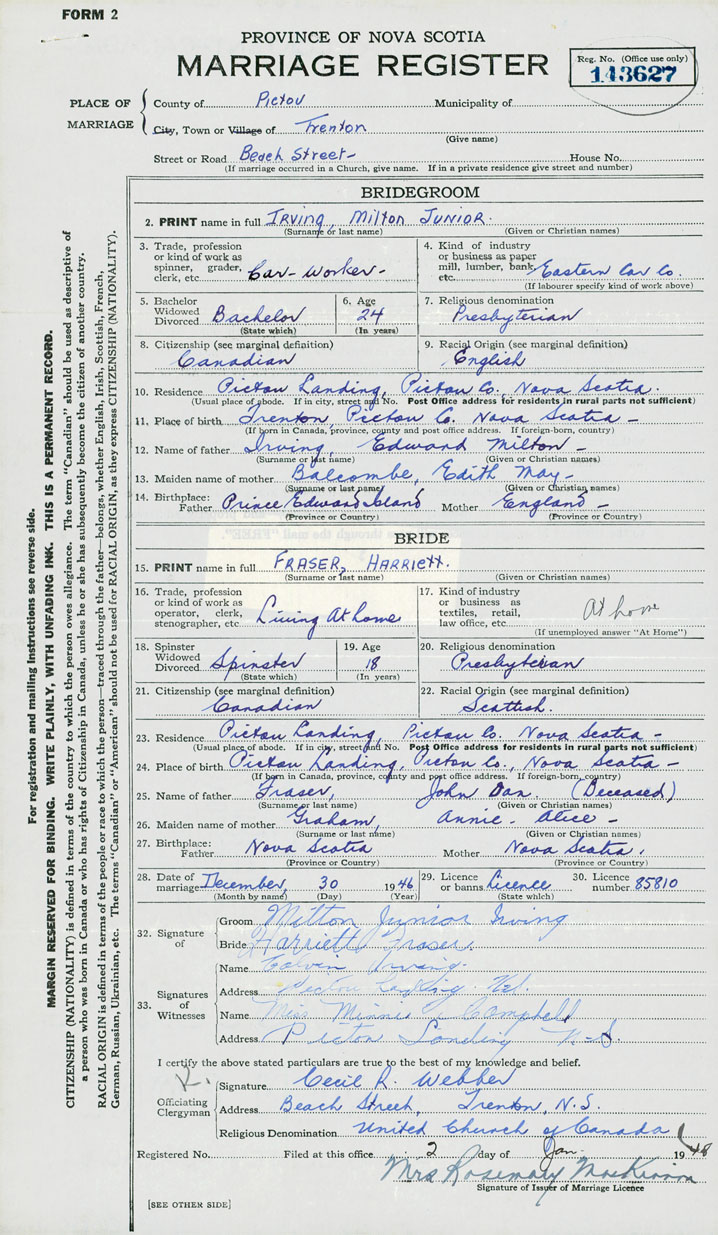 FORM 2
PROVINCE OF NOVA SCOTIA
MARRIAGE REGISTER
Reg. No. (Office use only)
143627
PLACE OF MARRIAGE
County of Pictou Municipality of
City, Town or Village of Trenton
(Give name)
Street or Road Beach Street- House No.
(If marriage occurred in a Church, give name. If in a private residence give street and number)
BRIDEGROOM
2. PRINT name in full IRVING, Milton JUNIOR.
(Surname or last name) (Given or Christian names)
3. Trade, profession or kind of work as spinner, grader, clerk, etc. Car-Worker-
4. Kind of industry or business as paper mill, lumber, bank, etc. Eastern Car Co.
(If labourer specify kind of work above)
5. Bachelor Widowed Divorced Bachelor
(State which)
6. Age 24
(In years)
7. Religious denomination Presbyterian
8. Citizenship (see marginal definition) Canadian
9. Racial Origin (see marginal definition) English
10. Residence Pictou Landing, Pictou Co. Nova Scotia.
(Usual place of abode. If in city, street and No. Post Office address for residents in rural parts not sufficient)
11. Place of birth Trenton, Pictou Co. Nova Scotia -
(If born in Canada, province, county and post office address. If foreign-born, country)
12. Name of father Irving, Edward Milton -
(Surname or last name) (Given or Christian names)
13. Maiden name of mother Balcombe, Edith May -
(Surname or last name) (Given or Christian names)
14. Birthplace: Father Prince Edward Island Mother England -
(Province or Country) (Province or Country)
BRIDE
15. PRINT name in full FRASER, HARRIETT.
(Surname or last name) (Given or Christian names)
16. Trade, profession or kind of work as operator, clerk, stenographer, etc. Living At home
17. Kind of industry or business as textiles, retail, law office, etc. At home
(If unemployed answer "At Home")
18. Spinster Widowed Divorced Spinster
(State which)
19. Age 18
(In years)
20. Religious denomination Presbyterian
21. Citizenship (see marginal definition) Canadian
22. Racial Origin (see marginal definition) Scottish.
23. Residence Pictou Landing, Pictou Co. Nova Scotia -
(Usual place of abode. If in city, street and No. Post Office address for residents in rural parts not sufficient)
24. Place of birth Pictou Landing, Pictou Co., Nova Scotia -
(If born in Canada, province, county and post office address. If foreign-born, country)
25. Name of father Fraser, John Dan. (Deceased)
(Surname or last name) (Given or Christian names)
26. Maiden name of mother Graham, Annie- Alice -
(Surname or last name) (Given or Christian names)
27. Birthplace: Father Nova Scotia Mother Nova Scotia.
(Province or Country) (Province or Country)
28. Date of marriage December, 30 1946
(Month by name) (Day) (Year)
29. Licence or banns Licence
(State which)
30. Licence number 85810
32. Signature of
Groom Milton Junior Irving
Bride Harriett Fraser.
33. Signatures of Witnesses
Name Irving.
Address Pictou Landing N.S.
Name Miss Minnie Campbell
Address Pictou Landing N-S.
I certify the above stated particulars are true to the best of my knowledge and belief.
Officiating Clergyman
Signature Cecil R. Webber
Address Beach Street, Trenton, N.S.
Religious Denomination United Church of Canada
Registered No. Filed at this office 2 day of Jan. 1948
Mrs Rosemary MacKinnon
Signature of Issuer of Marriage Licence
[SEE OTHER SIDE]
For registration and mailing instructions see reverse side.
MARGIN RESERVED FOR BINDING. WRITE PLAINLY, WITH UNFADING INK. THIS IS A PERMANENT RECORD.
CITIZENSHIP (NATIONALITY) is defined in terms of the country to which the person owes allegiance. The term "Canadian" should be used as descriptive of
a person who was born in Canada or who has rights of Citizenship in Canada, unless he or she has subsequently become the citizen of another country.
RACIAL ORIGIN is defined in terms of the people or race to which the person—traced through the father—belongs, whether English, Irish, Scottish, French,
German, Russian, Ukrainian, etc. The terms "Canadian" or "American" should not be used for RACIAL ORIGIN, as they express CITIZENSHIP (NATIONALITY).